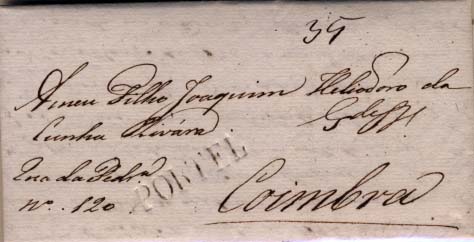 35
A meu Filho Joaquim Heliodoro da
Cunha Rivára
Rua da Pedra
nº. 120
PORTEL
Coimbra